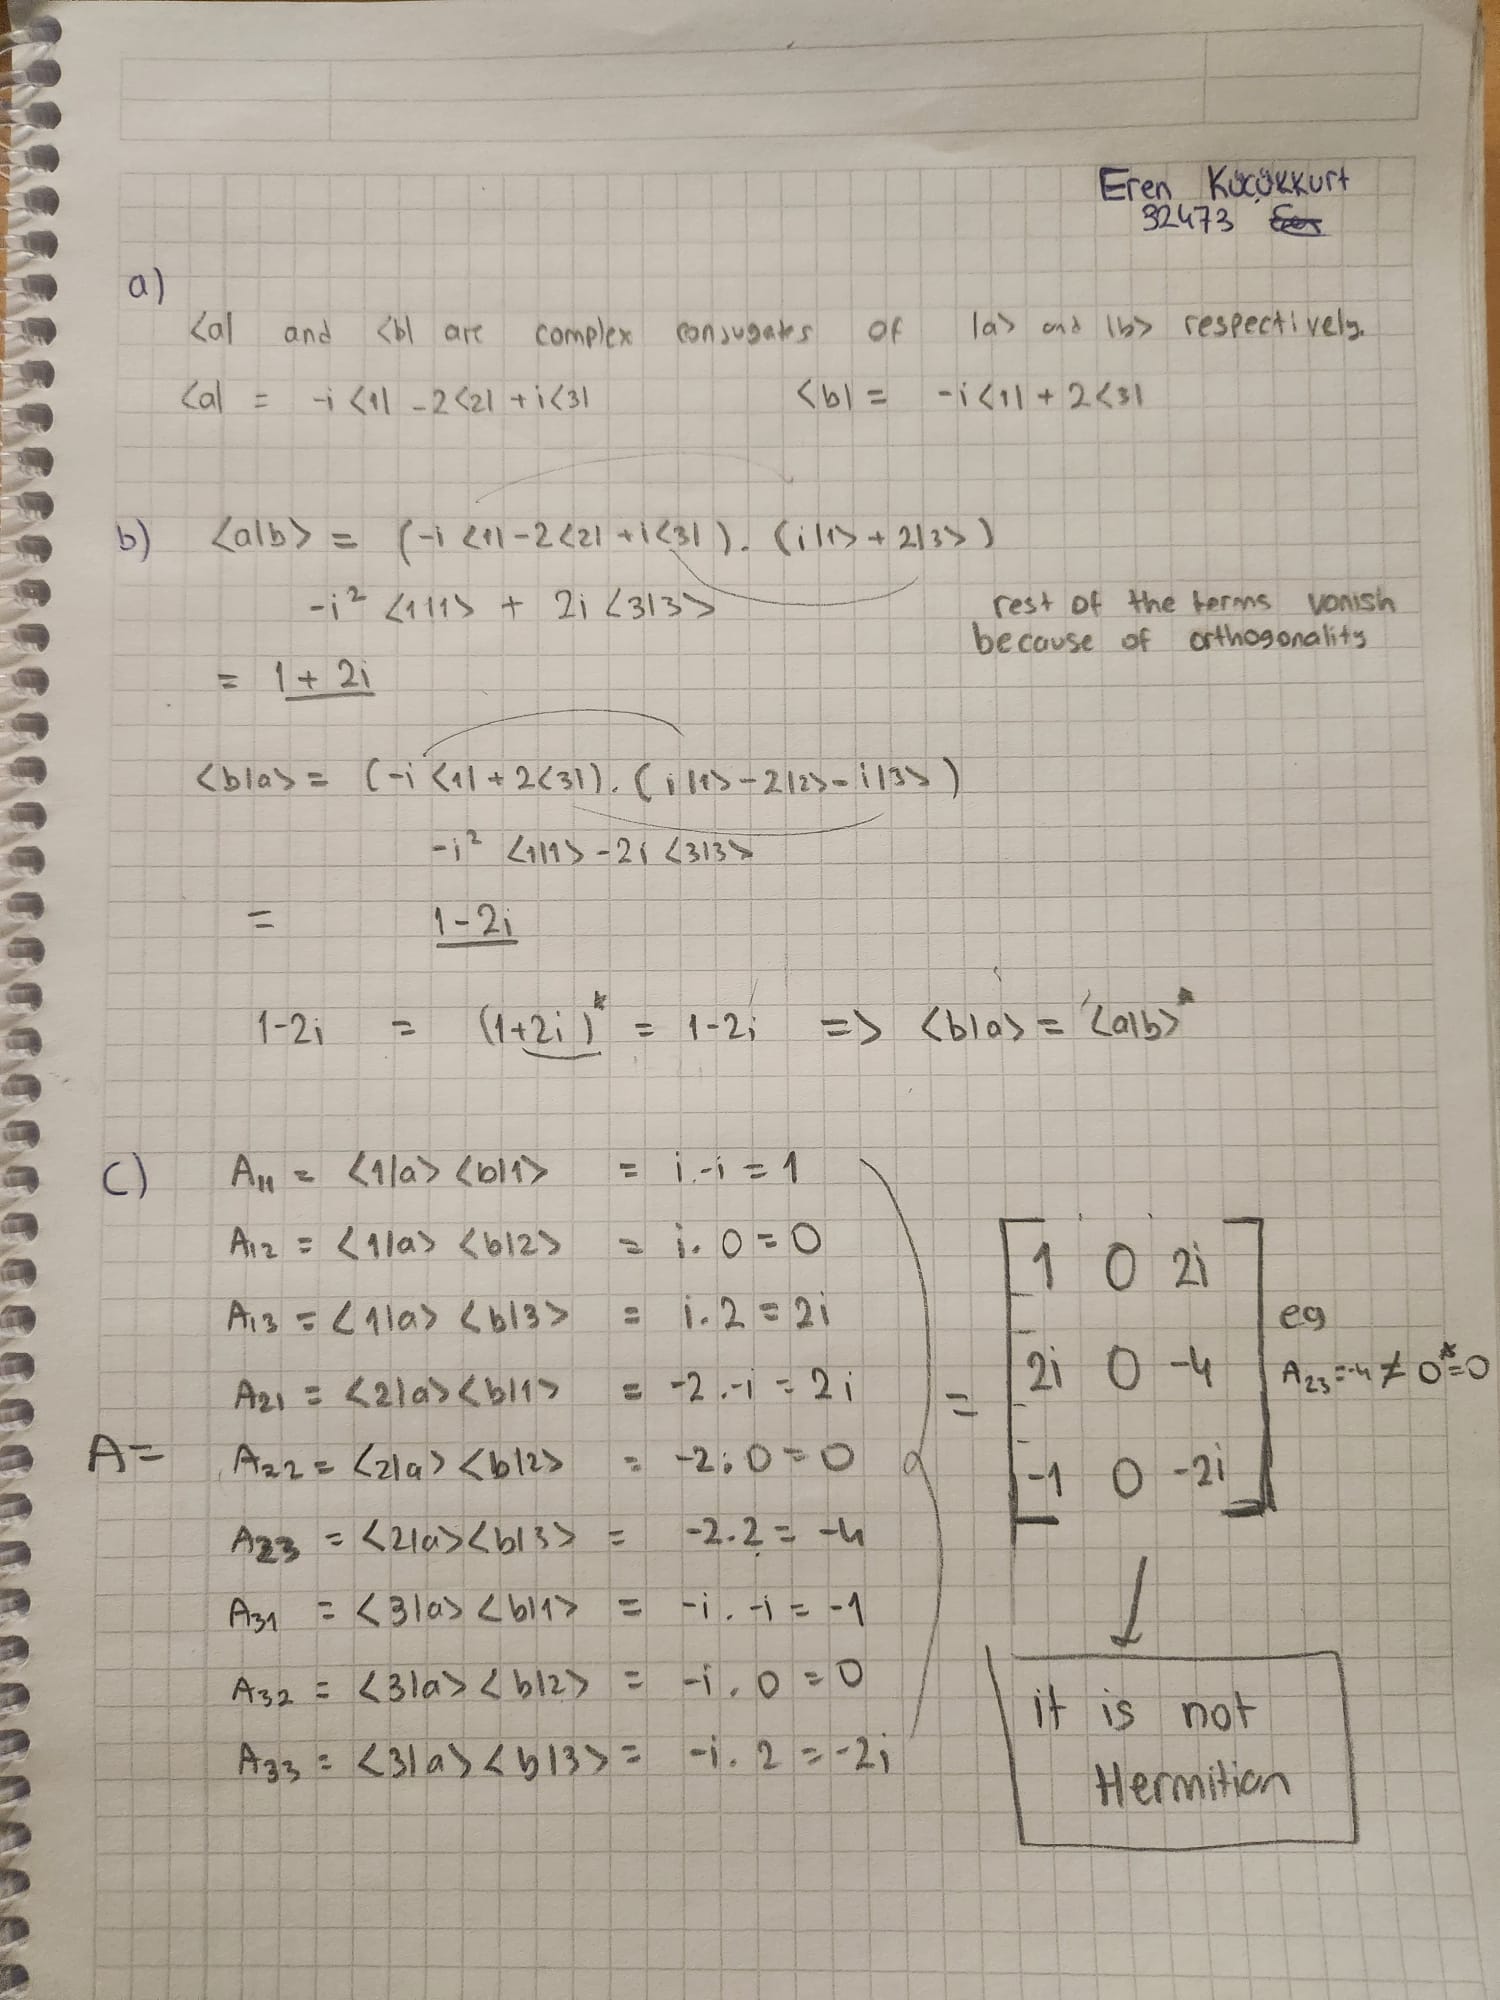 Eren Küçükkurt
32473
a)
<a| and <b| are complex conjugates of |a> and |b> respectively.
<a| = -i<1| -2<2| +i<3|    <b| = -i<1| + 2<3|
b) <a|b> = (-i<1| -2<2| +i<3|). (i|1> + 2|3>)
-i² <1|1> + 2i <3|3>
rest of the terms vanish
because of orthogonality
= 1 + 2i
<b|a> = (-i <1| + 2<3|). (i|1> -2|2> - i|3>)
-i² <1|1> -2i <3|3>
= 1-2i
1-2i = (1+2i)* = 1-2i => <b|a> = <a|b>*
c) A₁₁ = <1|a> <b|1> = i.-i = 1
A₁₂ = <1|a> <b|2> = i. 0 = 0
A₁₃ = <1|a> <b|3> = i. 2 = 2i
A₂₁ = <2|a> <b|1> = -2.-i = 2i
A= A₂₂ = <2|a> <b|2> = -2.0 = 0
A₂₃ = <2|a> <b|3> = -2.2 = -4
A₃₁ = <3|a> <b|1> = -i.-i = -1
A₃₂ = <3|a> <b|2> = -i. 0 = 0
A₃₃ = <3|a> <b|3> = -i. 2 = -2i
=
1 0 2i
2i 0 -4
-1 0 -2i
eg
A₂₃=-4 ≠ 0*=0
it is not
Hermitian